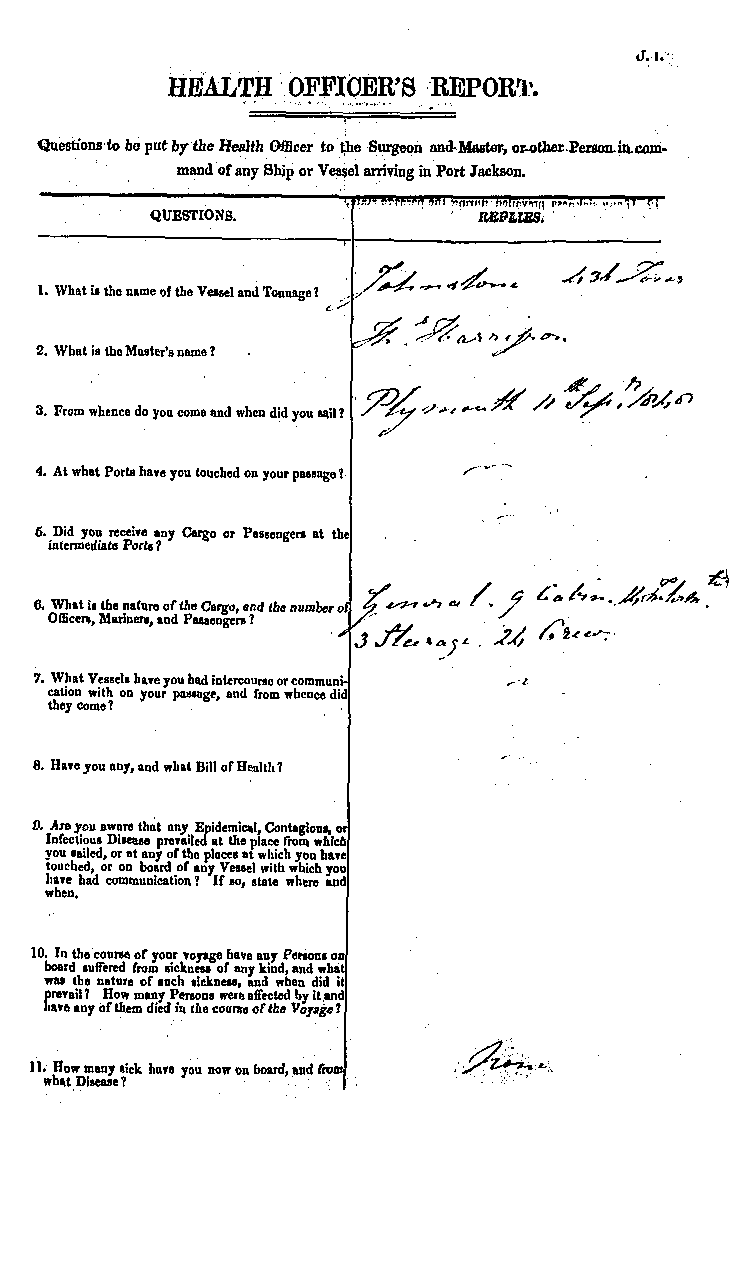 J. 1.
HEALTH OFFICER'S REPORT.
Questions to be put by the Health Officer to the Surgeon and Master, or other Person in com-
mand of any Ship or Vessel arriving in Port Jackson.
QUESTIONS.
REPLIES.
1. What is the name of the Vessel and Tonnage?
Johnstone 434 Tons
2. What is the Master's name?
Harrison
3. From whence do you come and when did you sail?
Plymouth 11th Sepr. 1840
4. At what Ports have you touched on your passage?
5. Did you receive any Cargo or Passengers at the
intermediate Ports?
6. What is the nature of the Cargo, and the number of
Officers, Mariners, and Passengers?
General. 9 Cabin.
3 Steerage. 24 Crew.
7. What Vessels have you had intercourse or communi-
cation with on your passage, and from whence did
they come?
8. Have you any, and what Bill of Health?
9. Are you aware that any Epidemical, Contagious, or
Infectious Disease prevailed at the place from which
you sailed, or at any of the places at which you have
touched, or on board of any Vessel with which you
have had communication? If so, state where and
when.
10. In the course of your voyage have any Persons on
board suffered from sickness of any kind, and what
was the nature of such sickness, and when did it
prevail? How many Persons were affected by it and
have any of them died in the course of the Voyage?
11. How many sick have you now on board, and from
what Disease?
None